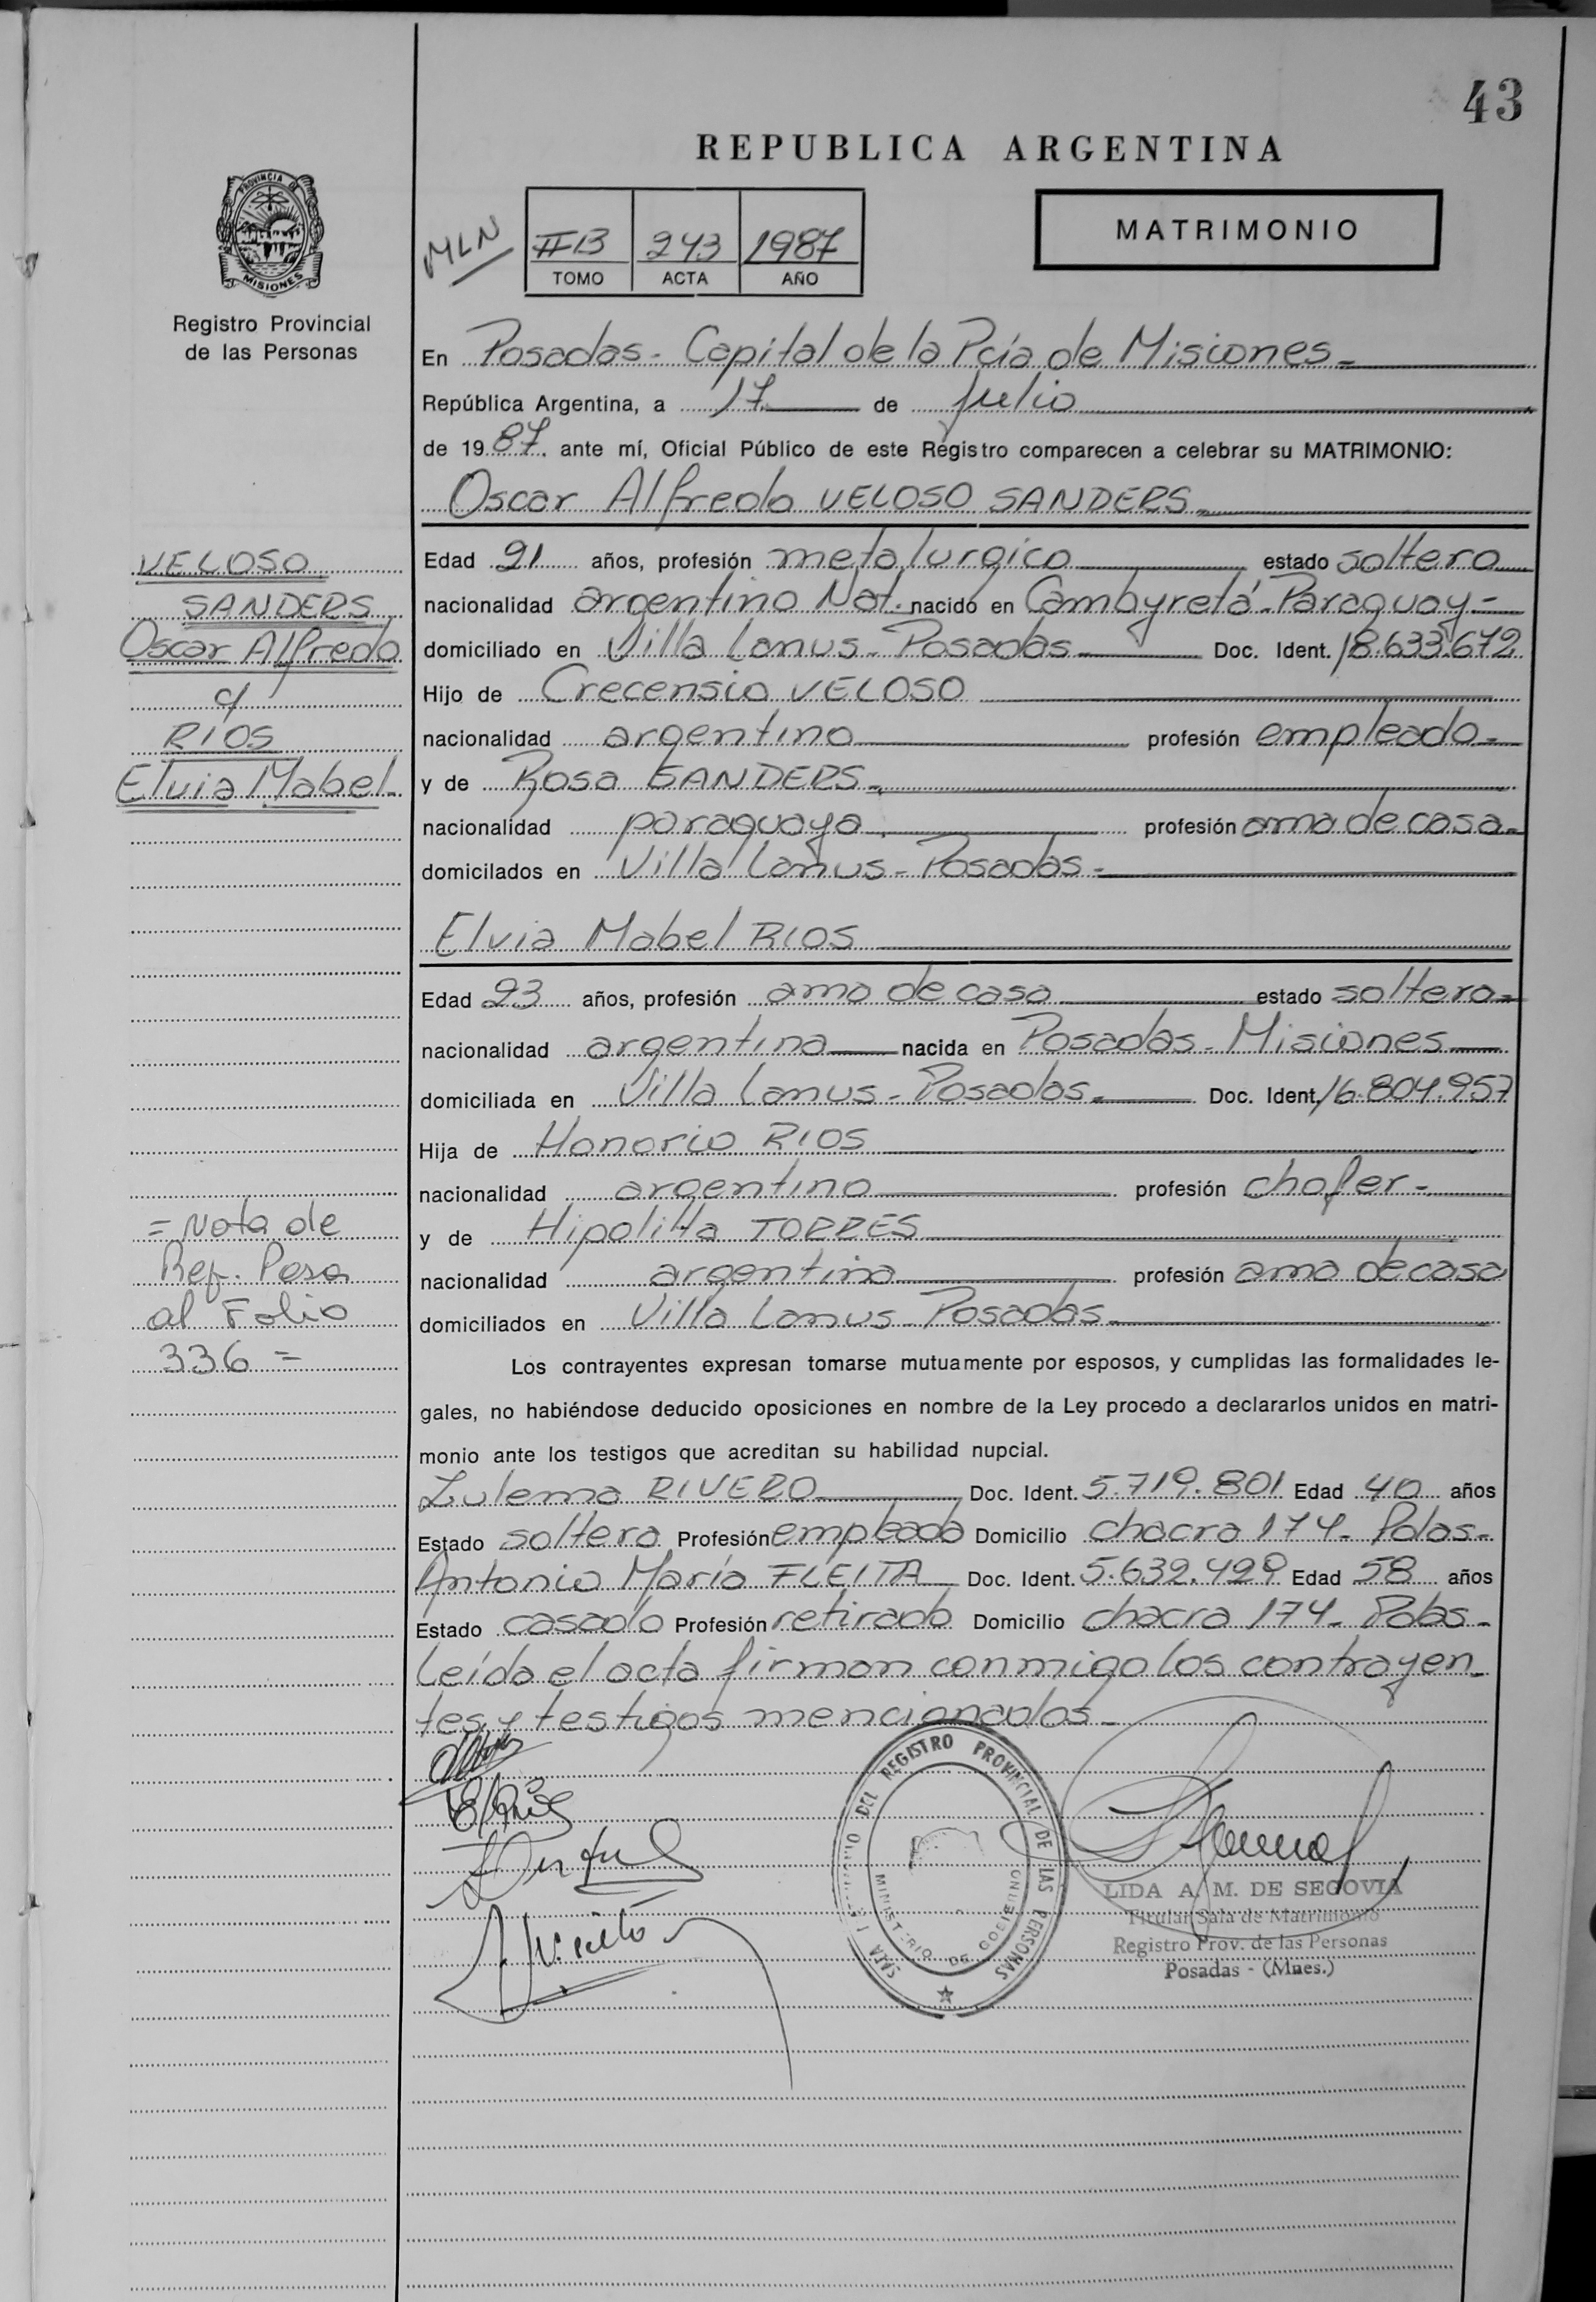 43
REPUBLICA ARGENTINA
PROVINCIA DE
MISIONES
Registro Provincial
de las Personas
MLN
IIB 243 1987
TOMO ACTA AÑO
MATRIMONIO
En Posadas - Capital de la Pcia de Misiones -
República Argentina, a 17 de julio
de 1987. ante mí, Oficial Público de este Registro comparecen a celebrar su MATRIMONIO:
Oscar Alfredo VELOSO SANDERS
VELOSO
SANDERS
Oscar Alfredo
c/
RIOS
Elvia Mabel-
Edad 21 años, profesión metalurgico estado soltero
nacionalidad argentino Nat. nacido en Cambyretá-Paraguay-
domiciliado en Villa Lanus - Posadas Doc. Ident. 18.633.672
Hijo de Crecensio VELOSO
nacionalidad argentino profesión empleado-
y de Rosa SANDERS-
nacionalidad paraguaya profesión ama de casa-
domicilados en Villa Lanus - Posadas-
Elvia Mabel RIOS
Edad 23 años, profesión ama de casa estado soltera-
nacionalidad argentina nacida en Posadas - Misiones
domiciliada en Villa Lanus - Posadas- Doc. Ident. 16.804.957
Hija de Honorio RIOS
nacionalidad argentino profesión chofer-
y de Hipolitta TORRES
nacionalidad argentina profesión ama de casa
domiciliados en Villa Lanus - Posadas-
= Nota de
Ref. Pasa
al Folio
336 =
Los contrayentes expresan tomarse mutuamente por esposos, y cumplidas las formalidades le-
gales, no habiéndose deducido oposiciones en nombre de la Ley procedo a declararlos unidos en matri-
monio ante los testigos que acreditan su habilidad nupcial.
Zulema RIVERO Doc. Ident. 5.719.801 Edad 40 años
Estado soltera Profesión empleada Domicilio chacra 174- Pdas-
Antonio María FLEITA Doc. Ident. 5.632.429 Edad 58 años
Estado casado Profesión retirado Domicilio chacra 174- Pdas-
Leída el acta firman conmigo los contrayen-
tes y testigos mencionados-
DEL REGISTRO PROVINCIAL DE LAS PERSONAS
MINISTERIO DE GOBIERNO
SALA
LIDA A. M. DE SEGOVIA
Titular Sala de Matrimonio
Registro Prov. de las Personas
Posadas - (Mnes.)